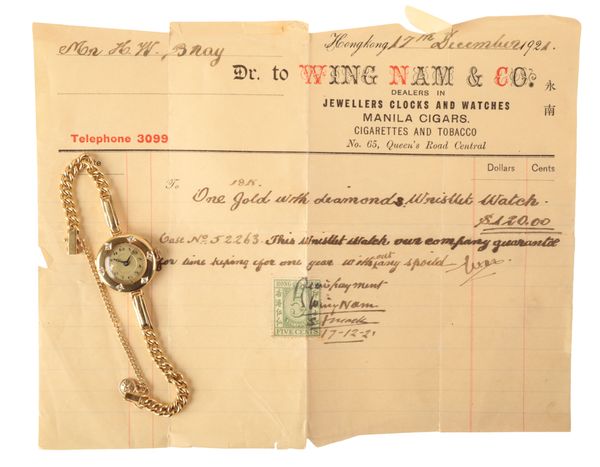 Mr H. W. Bray
Hongkong, 17th December 1921.
Dr. to WING NAM & CO.
永南
DEALERS IN
JEWELLERS CLOCKS AND WATCHES
MANILA CIGARS.
CIGARETTES AND TOBACCO
No. 65, Queen's Road Central
Telephone 3099
Dollars Cents
To 18K.
One Gold with diamonds Wristlet Watch.
$120.00
Case No. 52263. This Wristlet Watch our company guarantee
for time keping for one year without any spoild
payment
Wing Nam
17-12-21
HONG
FIVE CENTS